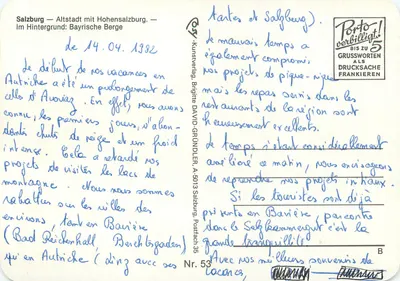 Salzburg — Altstadt mit Hohensalzburg. —
Im Hintergrund: Bayrische Berge
le 14.04.1982
Le début de nos vacances en
Autriche a été un prolongement de
celles d'Avoriaz. En effet, nous avons
connu, les premiers jours, d'abon-
dantes chutes de neige et un froid
intense. Cela a retardé nos
projets de visites des lacs de
montagne. Nous nous sommes
rabattus sur les villes des
environs, tant en Bavière
(Bad Reichenhall, Berchtesgaden)
qu'en Autriche (
avec ses
Cosy-Kunstverlag, Brigitte DAVID-GRÜNDLER, A-5013 Salzburg, Postfach 35
Nr. 53
et Salzburg).
Le mauvais temps a
également compromis
nos projets de pique-nique
mais les repas servis dans les
restaurants de la région sont
heureusement excellents.
Le temps s'étant considérablement
amélioré ce matin, nous envisageons
de reprendre nos projets initiaux.
Si les touristes sont déjà
présents en Bavière, par contre
dans le Salzkammergut c'est la
grande tranquillité!
Avec nos meilleurs souvenirs de
vacances,
Porto-
verbilligt!
BIS ZU
5
GRUSSWORTEN
ALS
DRUCKSACHE
FRANKIEREN
B